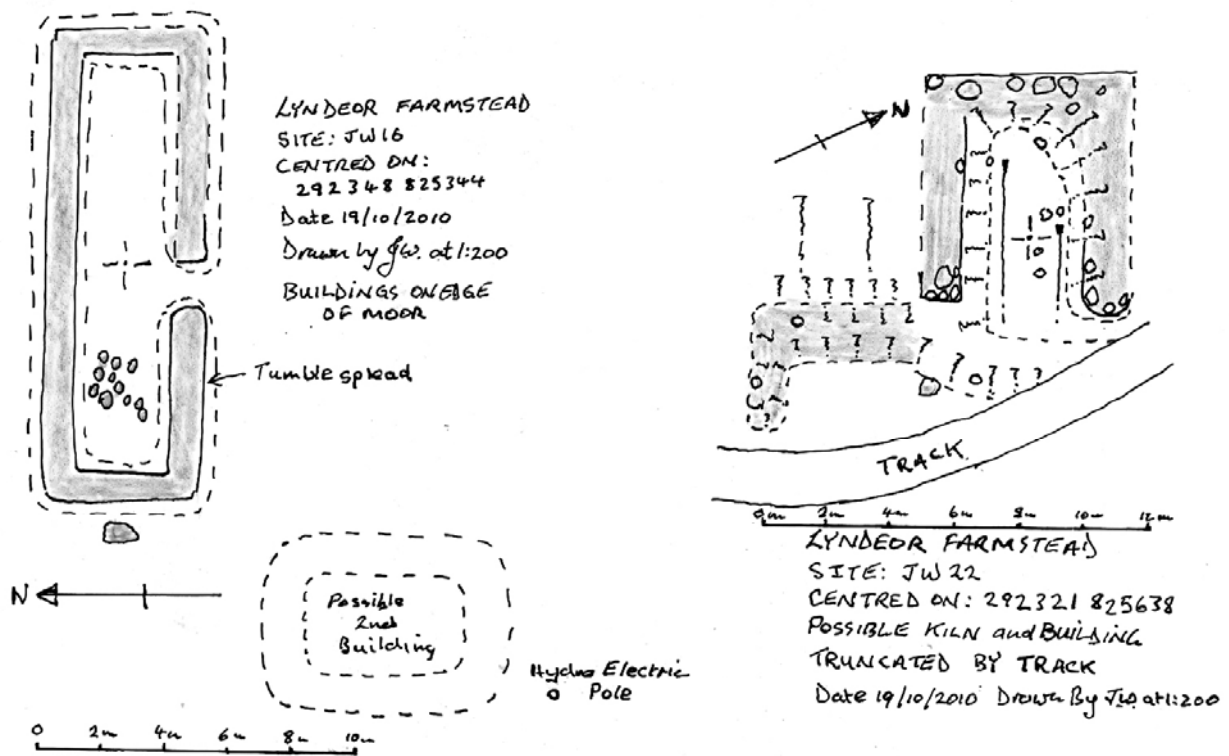 LYNDEOR FARMSTEAD
SITE: JW16
CENTRED ON:
292348 825344
Date 19/10/2010
Drawn by JW. at 1:200
BUILDINGS ON EDGE
OF MOOR
Tumble spread
N
Possible
2nd
Building
Hydro Electric
Pole
0 2m 4m 6m 8m 10m
N
TRACK
0m 2m 4m 6m 8m 10m 12m
LYNDEOR FARMSTEAD
SITE: JW22
CENTRED ON: 292321 825638
POSSIBLE KILN and BUILDING
TRUNCATED BY TRACK
Date 19/10/2010 Drawn By JW. at 1:200